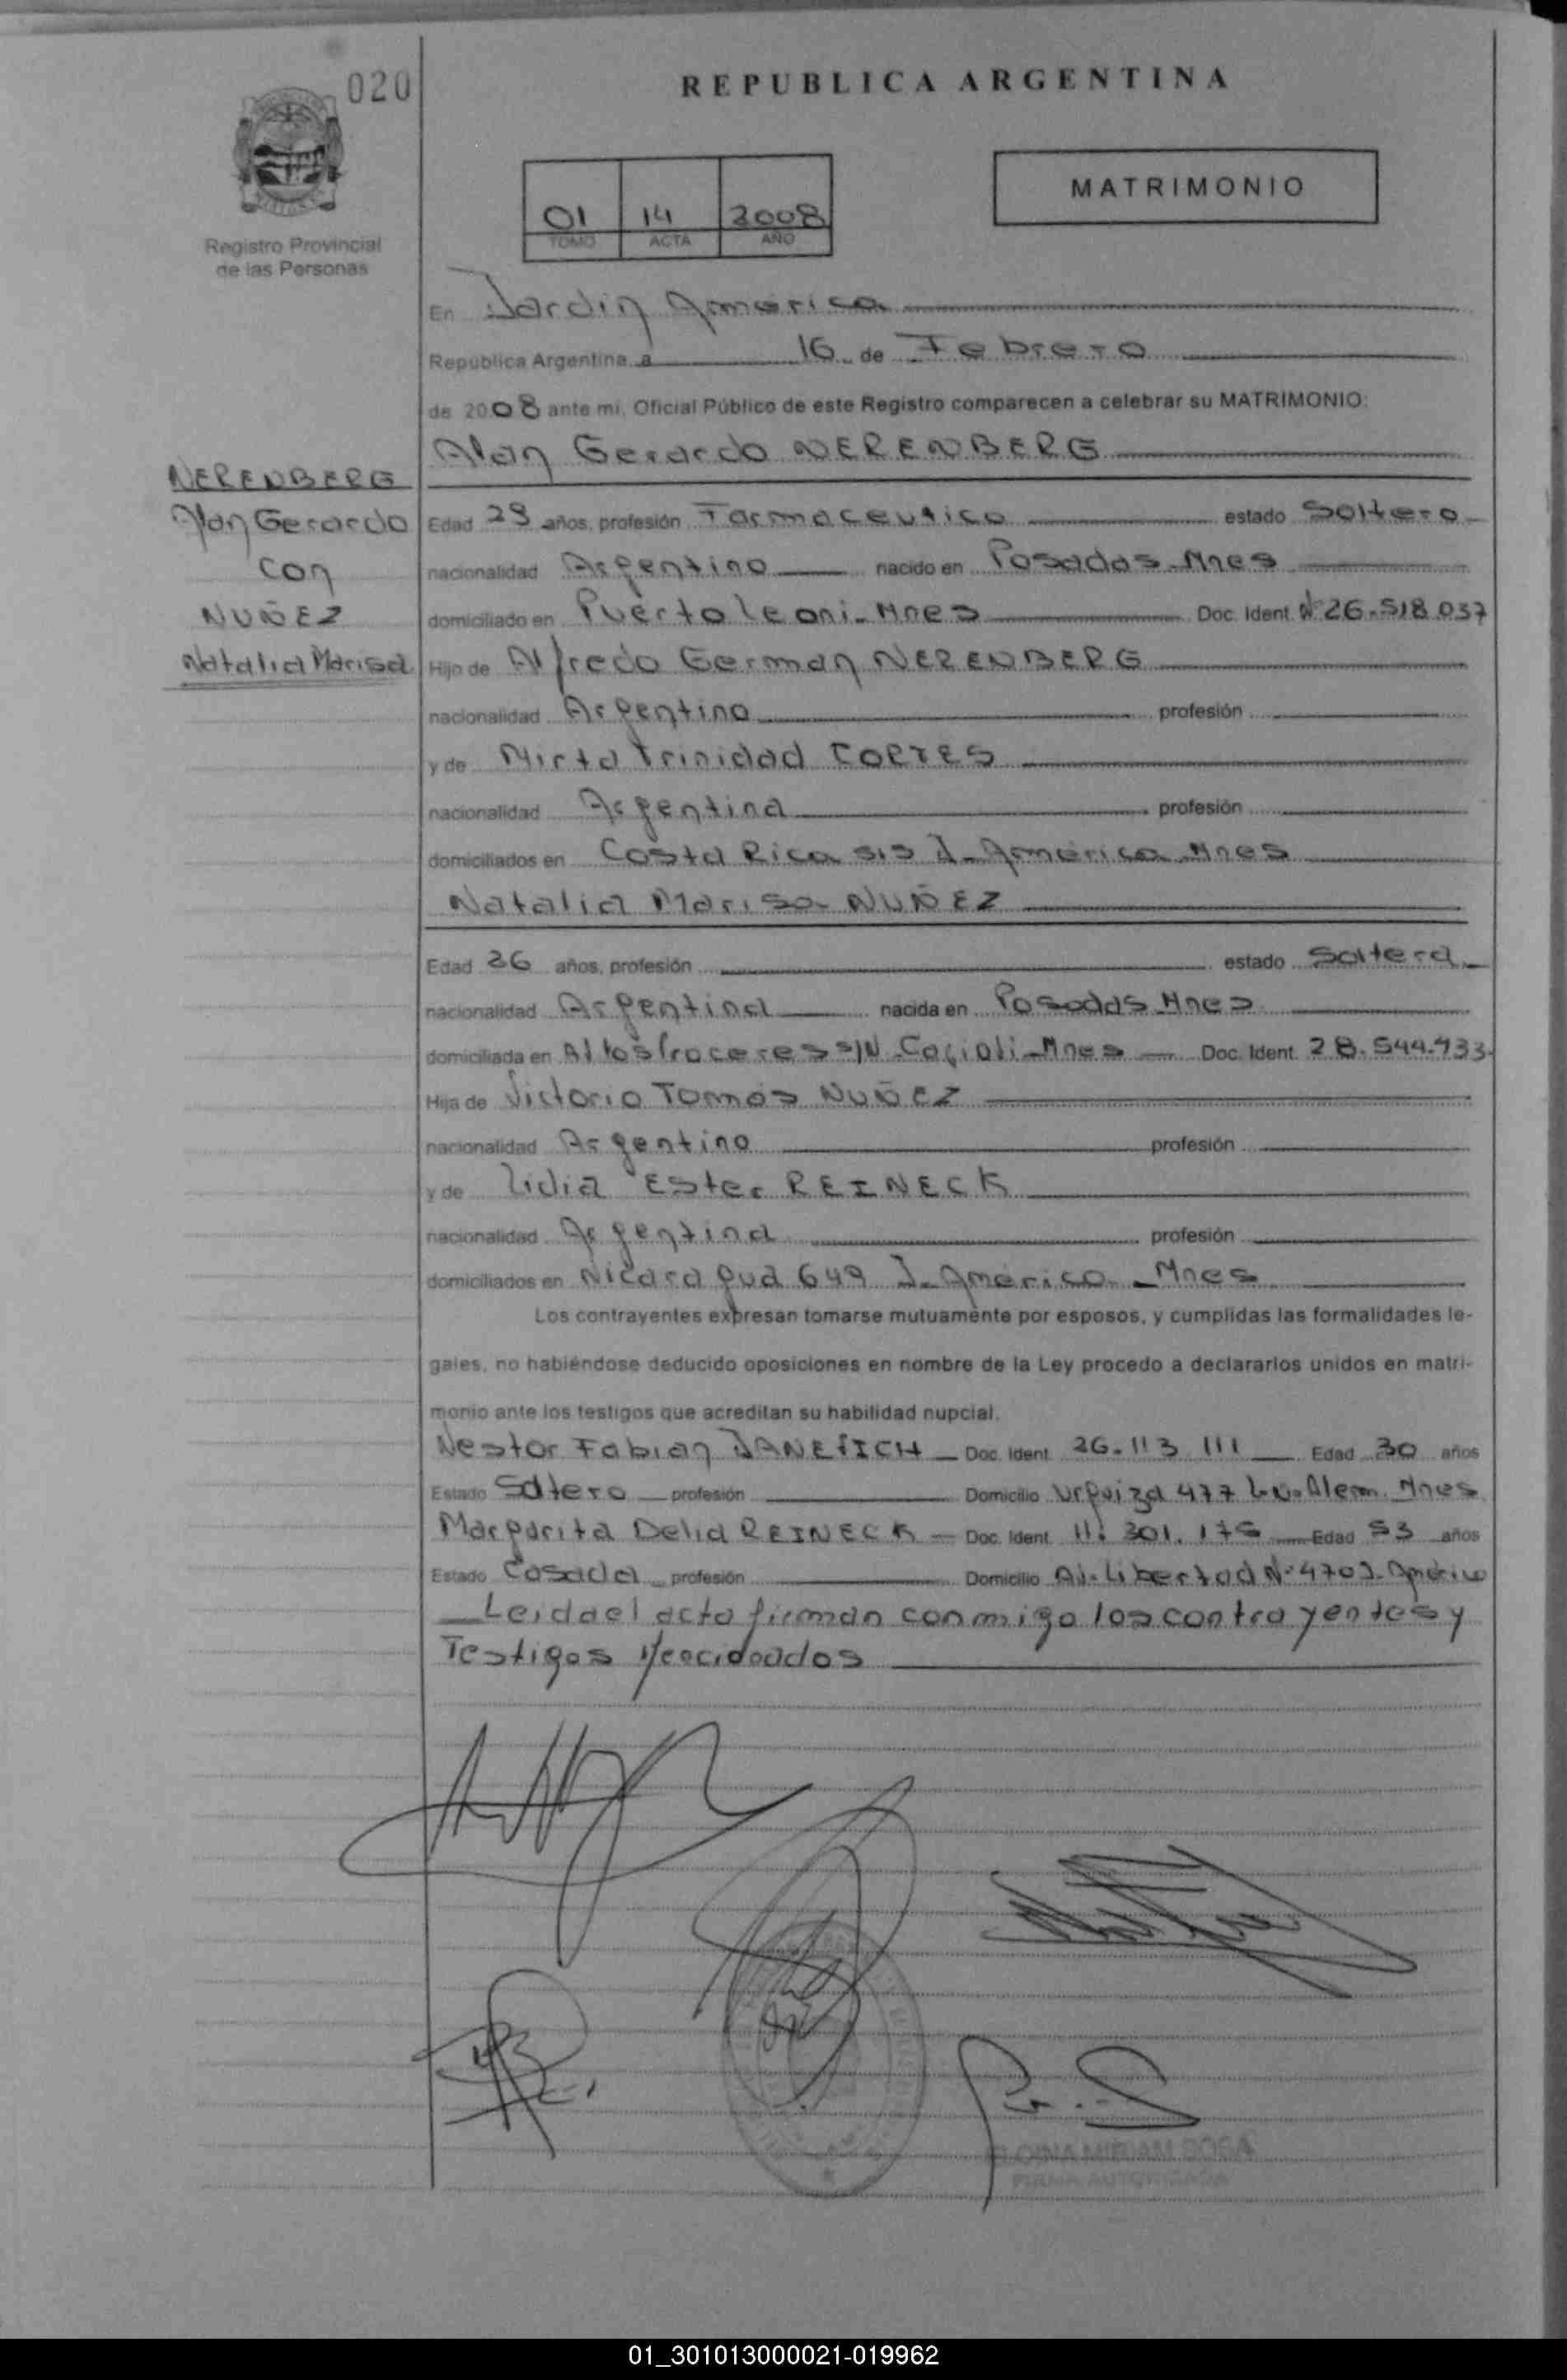 020
REPUBLICA ARGENTINA
Registro Provincial
de las Personas
01 14 2008
TOMO ACTA AÑO
MATRIMONIO
En Jardin América
República Argentina, a 16 de Febrero
de 2008 ante mi, Oficial Público de este Registro comparecen a celebrar su MATRIMONIO:
Alan Gerardo NERENBERG
NERENBERG
Alan Gerardo
con
NUÑEZ
Natalia Marisa
Edad 29 años, profesión Farmaceutico estado Soltero
nacionalidad Argentino nacido en Posadas-Mnes
domiciliado en Puerto leoni-Mnes Doc. Ident. Nº 26.518.037
Hijo de Alfredo German NERENBERG
nacionalidad Argentino profesión
y de Mirta Trinidad CORTES
nacionalidad Argentina profesión
domiciliados en Costa Rica J-América Mnes
Natalia Marisa NUÑEZ
Edad 26 años, profesión estado Soltera
nacionalidad Argentina nacida en Posadas Mnes
domiciliada en Altos Proceres S/N Mnes Doc. Ident. 28.544.933
Hija de Victorio Tomás NUÑEZ
nacionalidad Argentino profesión
y de Lidia Ester REINECK
nacionalidad Argentina profesión
domiciliados en Nicaragua 649 J-America-Mnes
Los contrayentes expresan tomarse mutuamente por esposos, y cumplidas las formalidades le-
gales, no habiéndose deducido oposiciones en nombre de la Ley procedo a declararlos unidos en matri-
monio ante los testigos que acreditan su habilidad nupcial.
Nestor Fabian Doc. Ident. 26.113.111 Edad 30 años
Estado Soltero profesión Domicilio Urquiza 477 L.N.Alem. Mnes
Margarita Delia REINECK Doc. Ident. 11.301.175 Edad 53 años
Estado Casada profesión Domicilio Av. Libertad Nº 470 J. América
Leida el acta firman conmigo los contrayentes y
Testigos
FIRMA AUTORIZADA
01_301013000021-019962